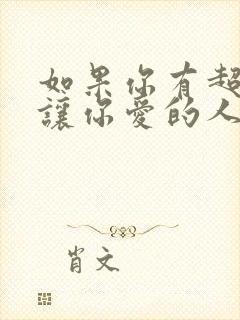 如果你有超
讓你愛的人
肖文